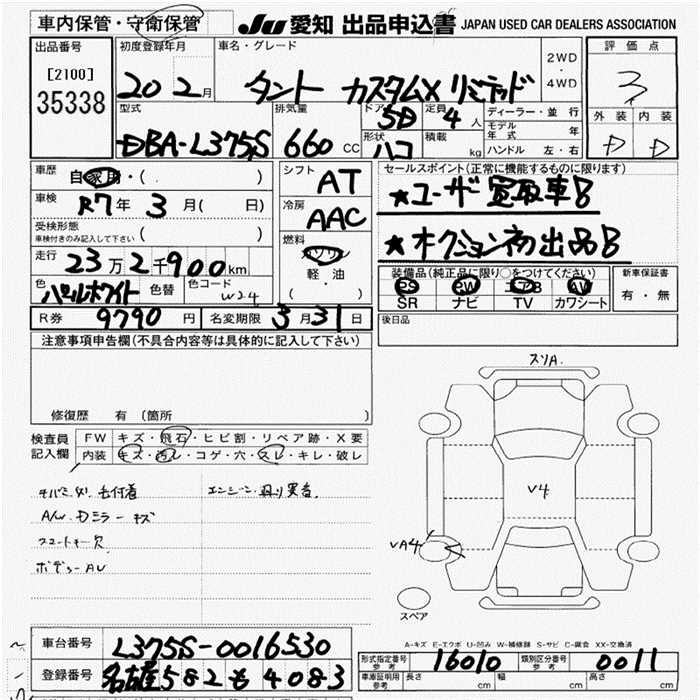 車内保管・守衛保管
JU 愛知 出品申込書 JAPAN USED CAR DEALERS ASSOCIATION
出品番号
[2100]
35338
初度登録年月
20 2月
車名・グレード
タント カスタムX リミテッド
2WD
・
4WD
評価点
3
外装 内装
D D
型式
DBA-L375S
排気量
660 CC
ドア
5D
定員
4 人
形状
ハコ
積載
kg
ディーラー・並行
モデル年式 年
ハンドル 左・右
車歴
自家用・( )
車検
R7年 3月( 日)
受検形態
車検付きのみ記入して下さい ( )
走行
23万2千900km
色
パールホワイト
色替
色コード
W24
シフト
AT
冷房
AAC
燃料
ガソリン
軽・油
( )
セールスポイント(正常に機能するものに限ります)
★ユーザー買取車!!
★オークション初出品!!
装備品(純正品に限り○をつけてください)
PS PW エアB AW
SR ナビ TV カワシート
新車保証書
有・無
R券 9790円 名変期限 3月31日
後日品
注意事項申告欄(不具合内容等は具体的に記入して下さい)
修復歴 有(箇所 )
検査員
記入欄
FW キズ・飛石・ヒビ割・リペア跡・X要
内装 キズ・汚レ・コゲ・穴・スレ・キレ・破レ
毛付着
エンジン
A/W Dミラーキズ
欠
ボデーAU
スソA.
V4
VA4
スペア
A-キズ E-エクボ U-凹み W-補修跡 S-サビ C-腐食 XX-交換済
車台番号 L375S-0016530
登録番号 名古屋582も4083
形式指定番号
参考
16010
類別区分番号
参考
0011
車庫証明用
参考
長さ cm 幅 cm 高さ cm